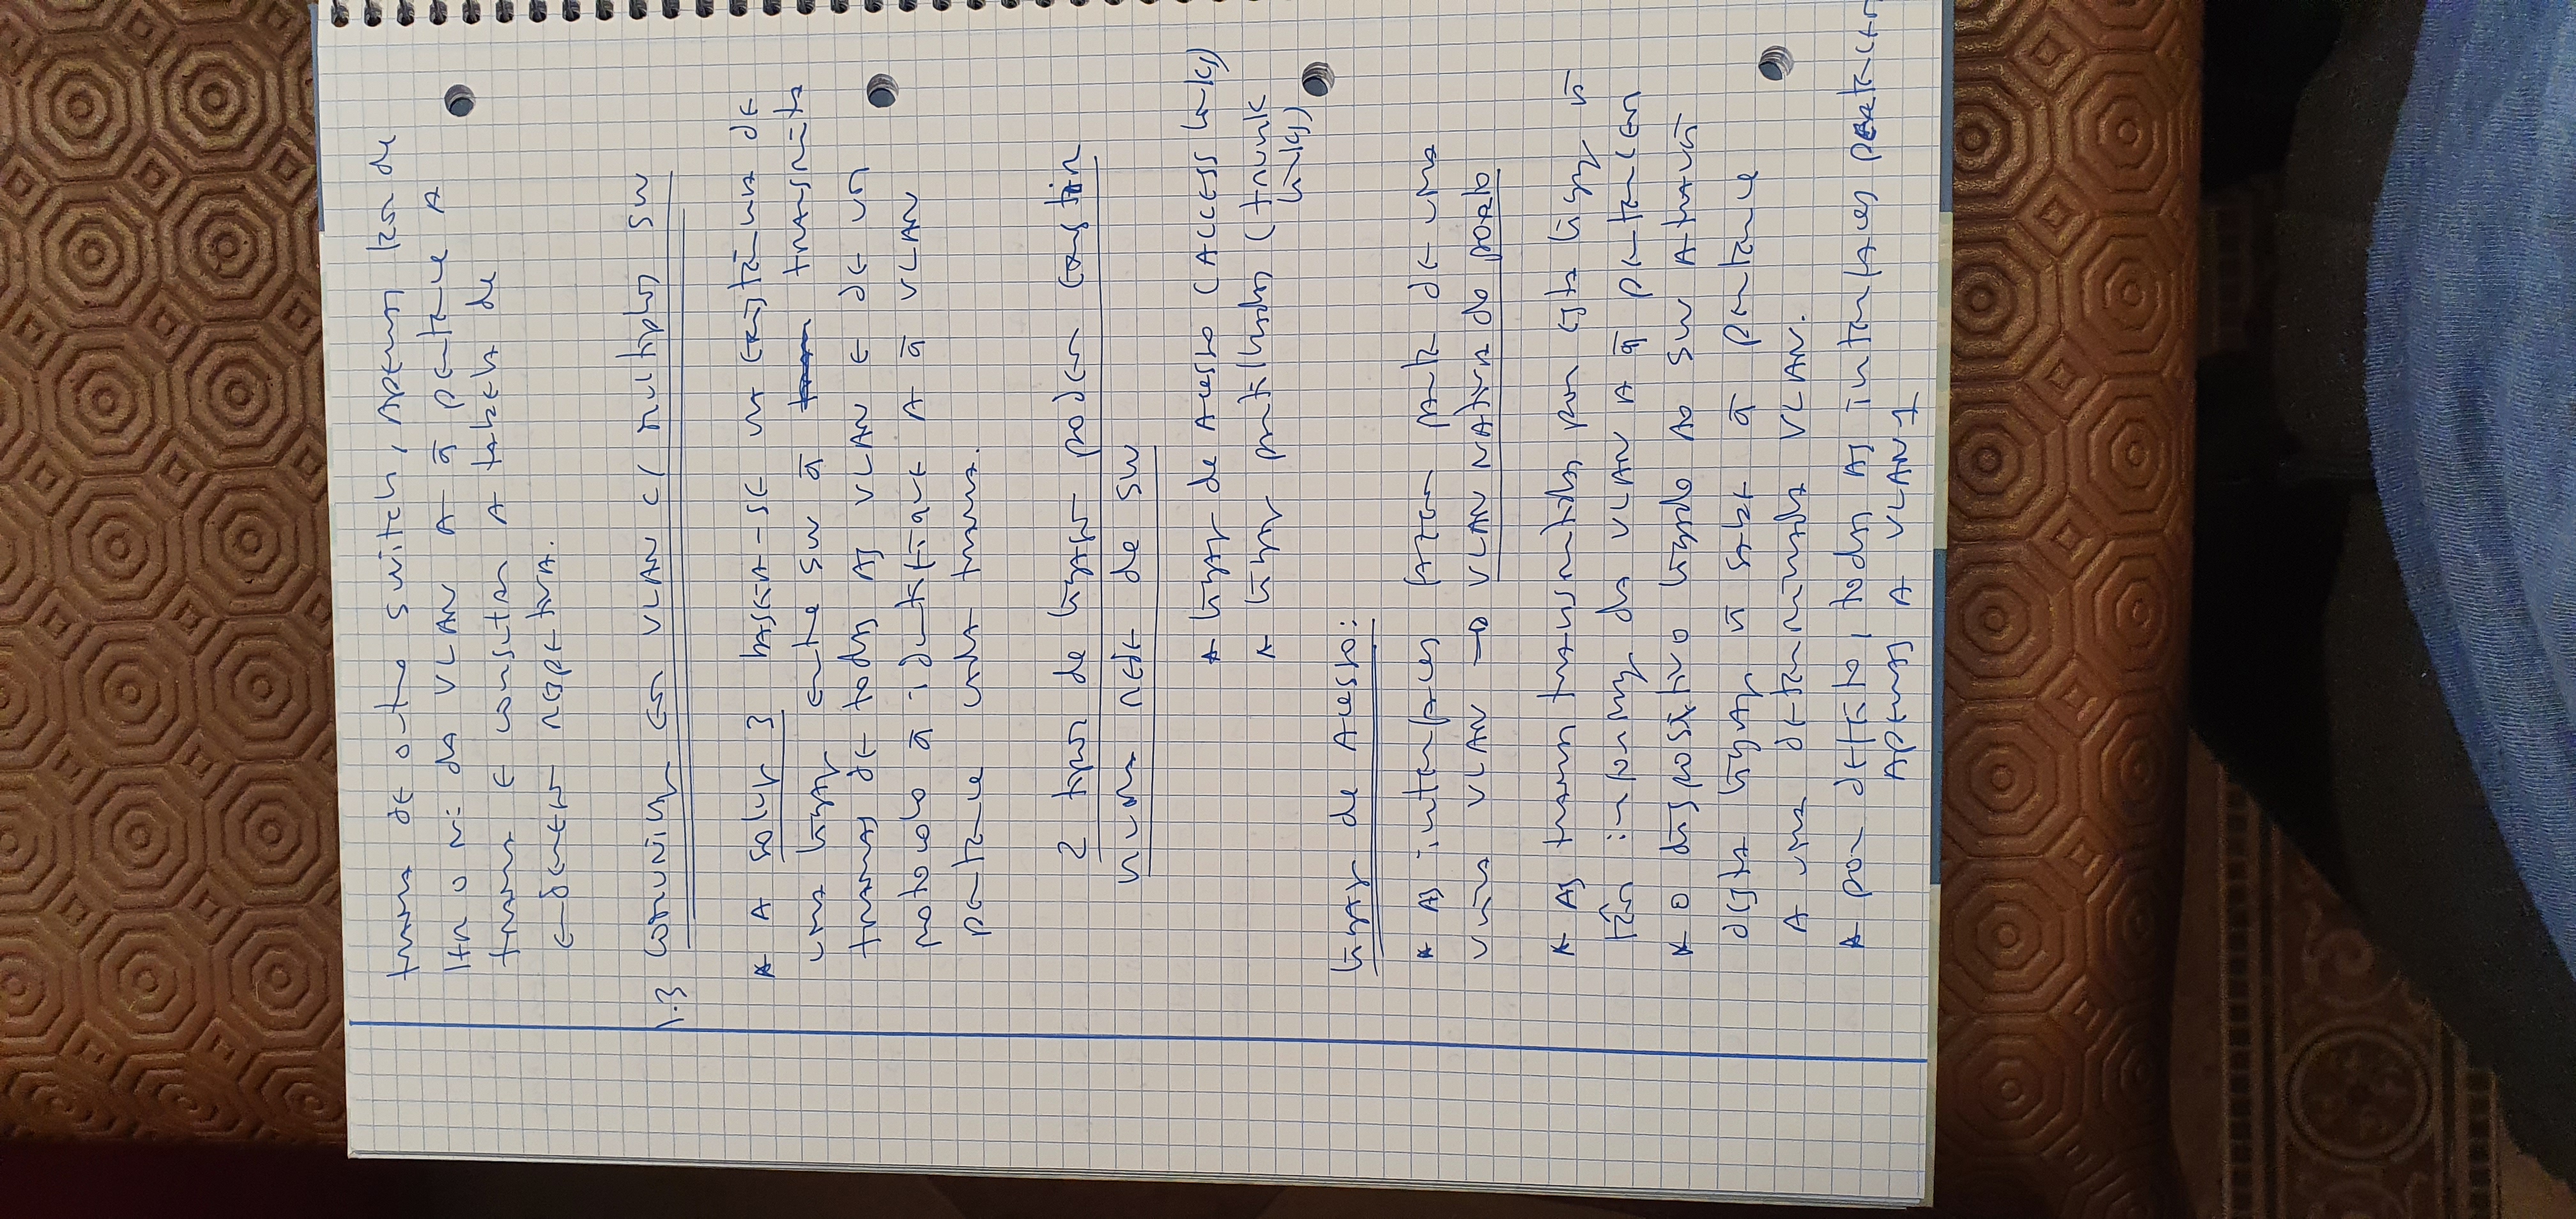 trama de outro switch, apenas tem de
ler o nº da VLAN a q̃ pertence a
trama e consultar a tabela de
endereços respetiva.
1.3 Comunicaç em VLAN c/ multiplos SW
* A soluç 3 baseia-se na existência de
uma ligaç entre SW q̃ transmita
tramas de todas as VLAN e de um
protocolo q̃ identifique a q̃ VLAN
pertence cada trama.
2 tipos de ligaçõ podem existir
numa rede de SW
* ligaç de Acesso (ACCESS links)
* ligaç partilhadas (trunk
links)
ligaç de Acesso:
* As interfaces fazem parte de uma
única VLAN → VLAN nativa do porto
* As tramas transmitidas por esta ligaç ñ
têm informaç da VLAN a q̃ pertencem
* O dispositivo ligado ao SW através
desta ligaç ñ sabe q̃ pertence
a uma determinada VLAN.
* por defeito, todas as interfaces pertencem
apenas a VLAN 1